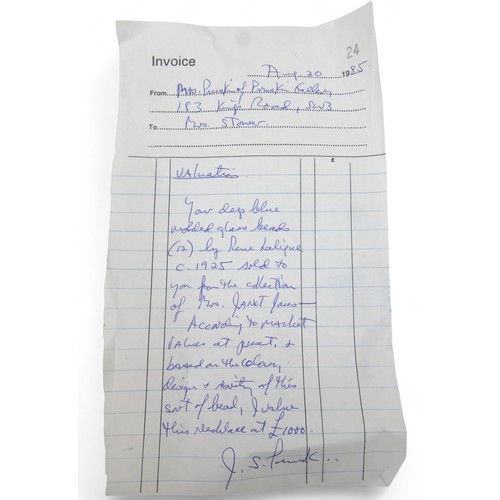 24
Invoice
Aug. 20 1985
From Mrs. of Gallery,
183 Kings Road, SW3
To Mrs. Stower
£
Valuation
Your deep blue
molded glass beads
(12) by Rene Lalique
c. 1925 sold to
you from the collection
of Mrs. JANET Jones—
According to market
values at present, &
based on the colour,
design & rarity of this
sort of bead, I value
this necklace at £1000.
J. S.